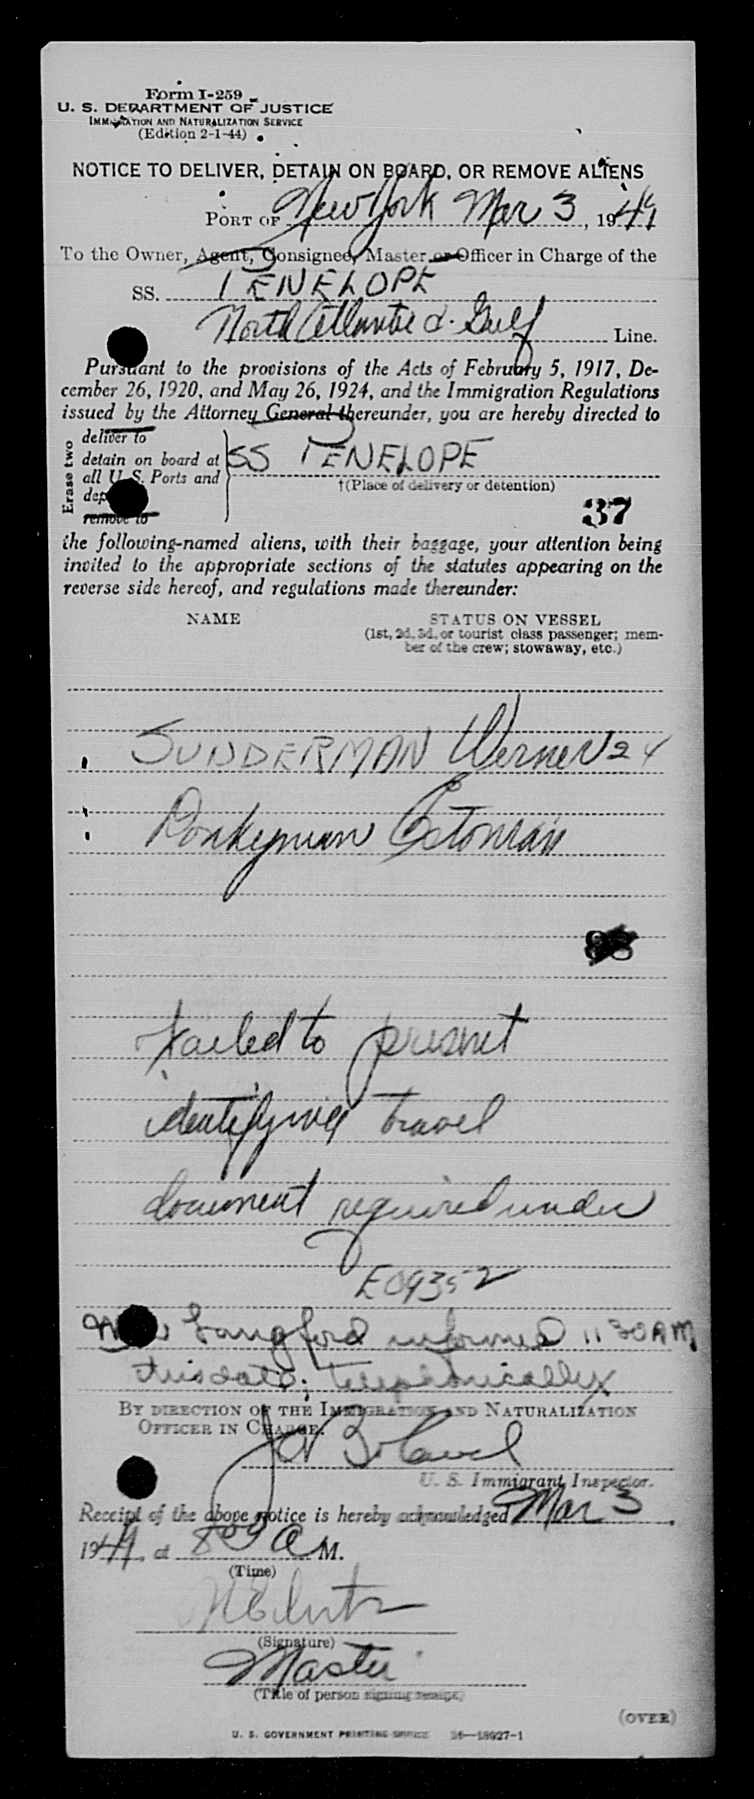 Form I-259
U. S. DEPARTMENT OF JUSTICE
IMMIGRATION AND NATURALIZATION SERVICE
(Edition 2-1-44)
NOTICE TO DELIVER, DETAIN ON BOARD, OR REMOVE ALIENS
PORT OF New York Mar 3, 1949
To the Owner, Agent, Consignee, Master or Officer in Charge of the
SS. PENELOPE
North Atlantic & Gulf Line.
Pursuant to the provisions of the Acts of February 5, 1917, De-
cember 26, 1920, and May 26, 1924, and the Immigration Regulations
issued by the Attorney General thereunder, you are hereby directed to
Erase two
deliver to
detain on board at
all U. S. Ports and
remove to
SS PENELOPE
†(Place of delivery or detention)
37
the following-named aliens, with their baggage, your attention being
invited to the appropriate sections of the statutes appearing on the
reverse side hereof, and regulations made thereunder:
NAME STATUS ON VESSEL
(1st, 2d, 3d, or tourist class passenger; mem-
ber of the crew; stowaway, etc.)
SUNDERMAN Werner 24
Donkeyman Estonian
Failed to present
identifying travel
document required under
EO9352
Langford informed 11 30AM
this date, telephonically
BY DIRECTION OF THE IMMIGRATION AND NATURALIZATION
OFFICER IN CHARGE.
U. S. Immigrant Inspector.
Receipt of the above notice is hereby acknowledged Mar 3
1949, at 8 00 A M.
(Time)
(Signature)
Master
(Title of person signing receipt)
(OVER)
U. S. GOVERNMENT PRINTING OFFICE 16—18927-1